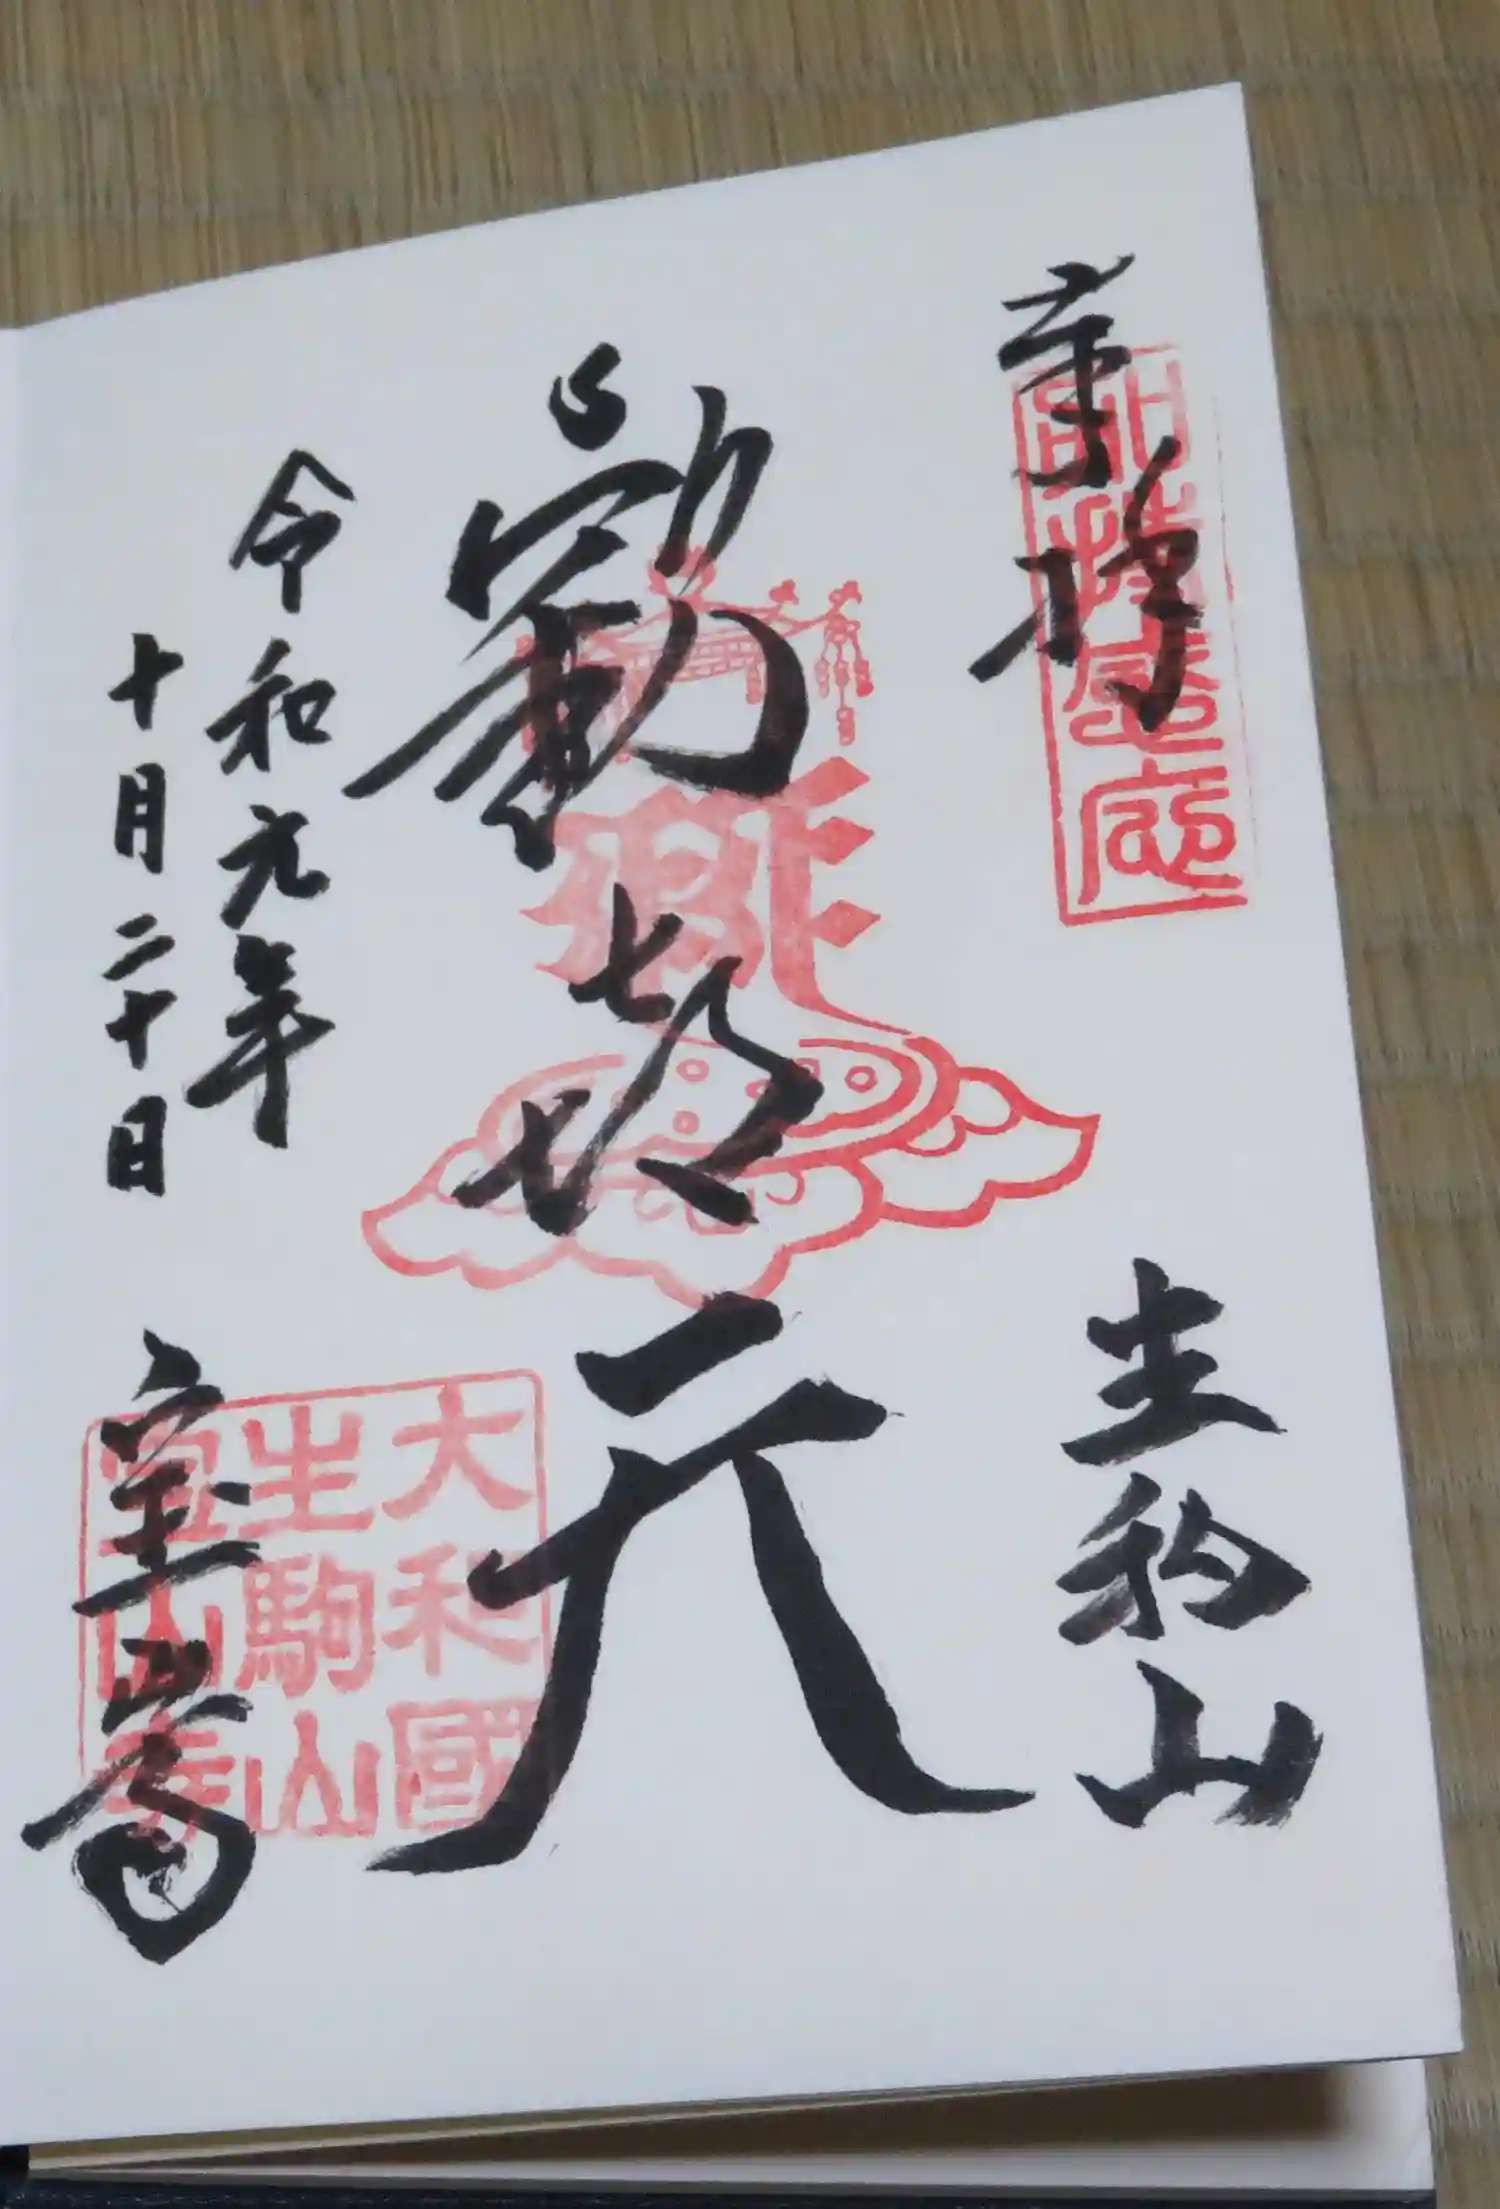 奉拝
加持感應
生駒山
歓㐂天
令和元年
十月二十日
大和國
生駒山
寶山寺
宝山寺